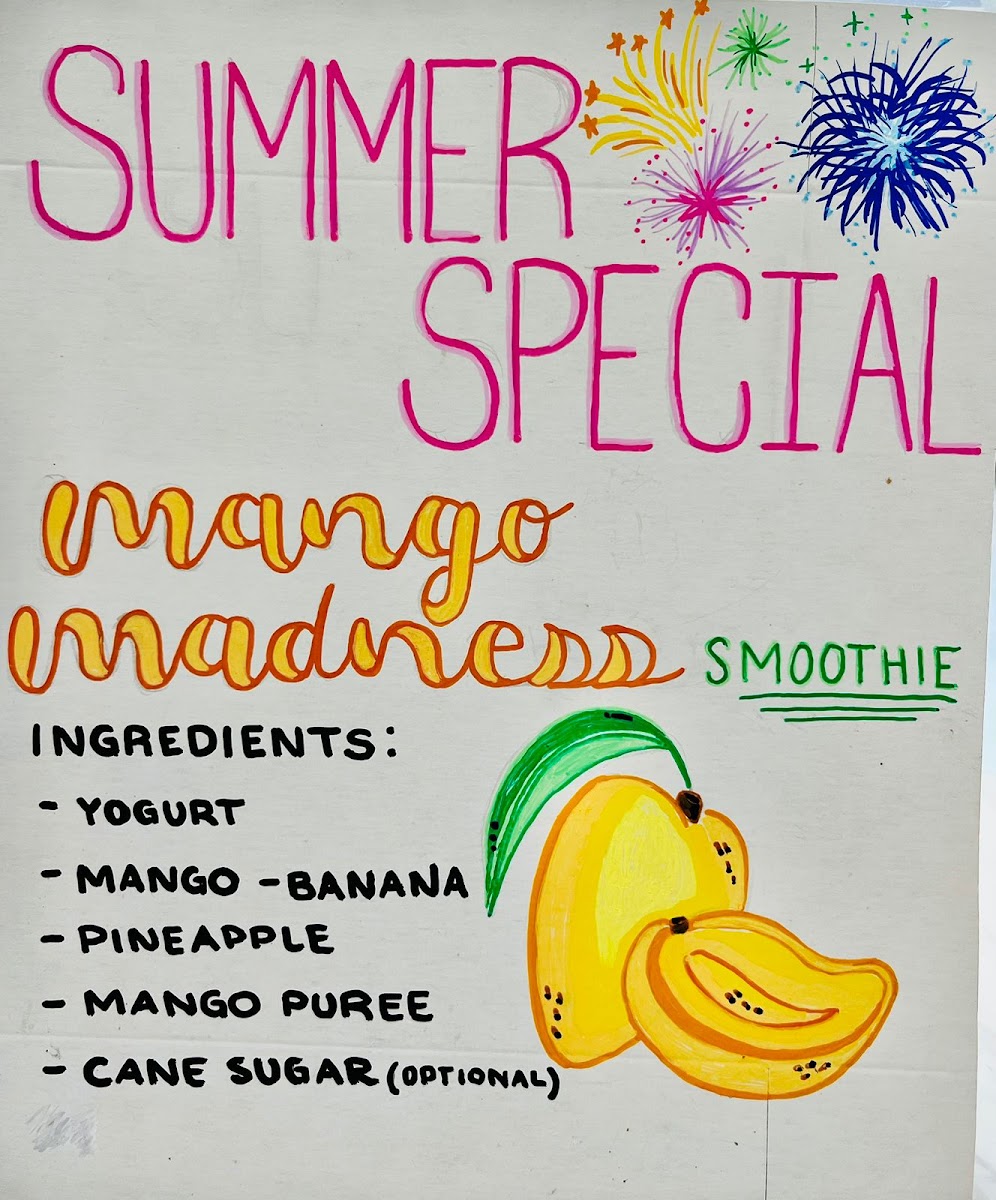 SUMMER
SPECIAL
mango
madness SMOOTHIE
INGREDIENTS:
- YOGURT
- MANGO - BANANA
- PINEAPPLE
- MANGO PUREE
- CANE SUGAR (OPTIONAL)